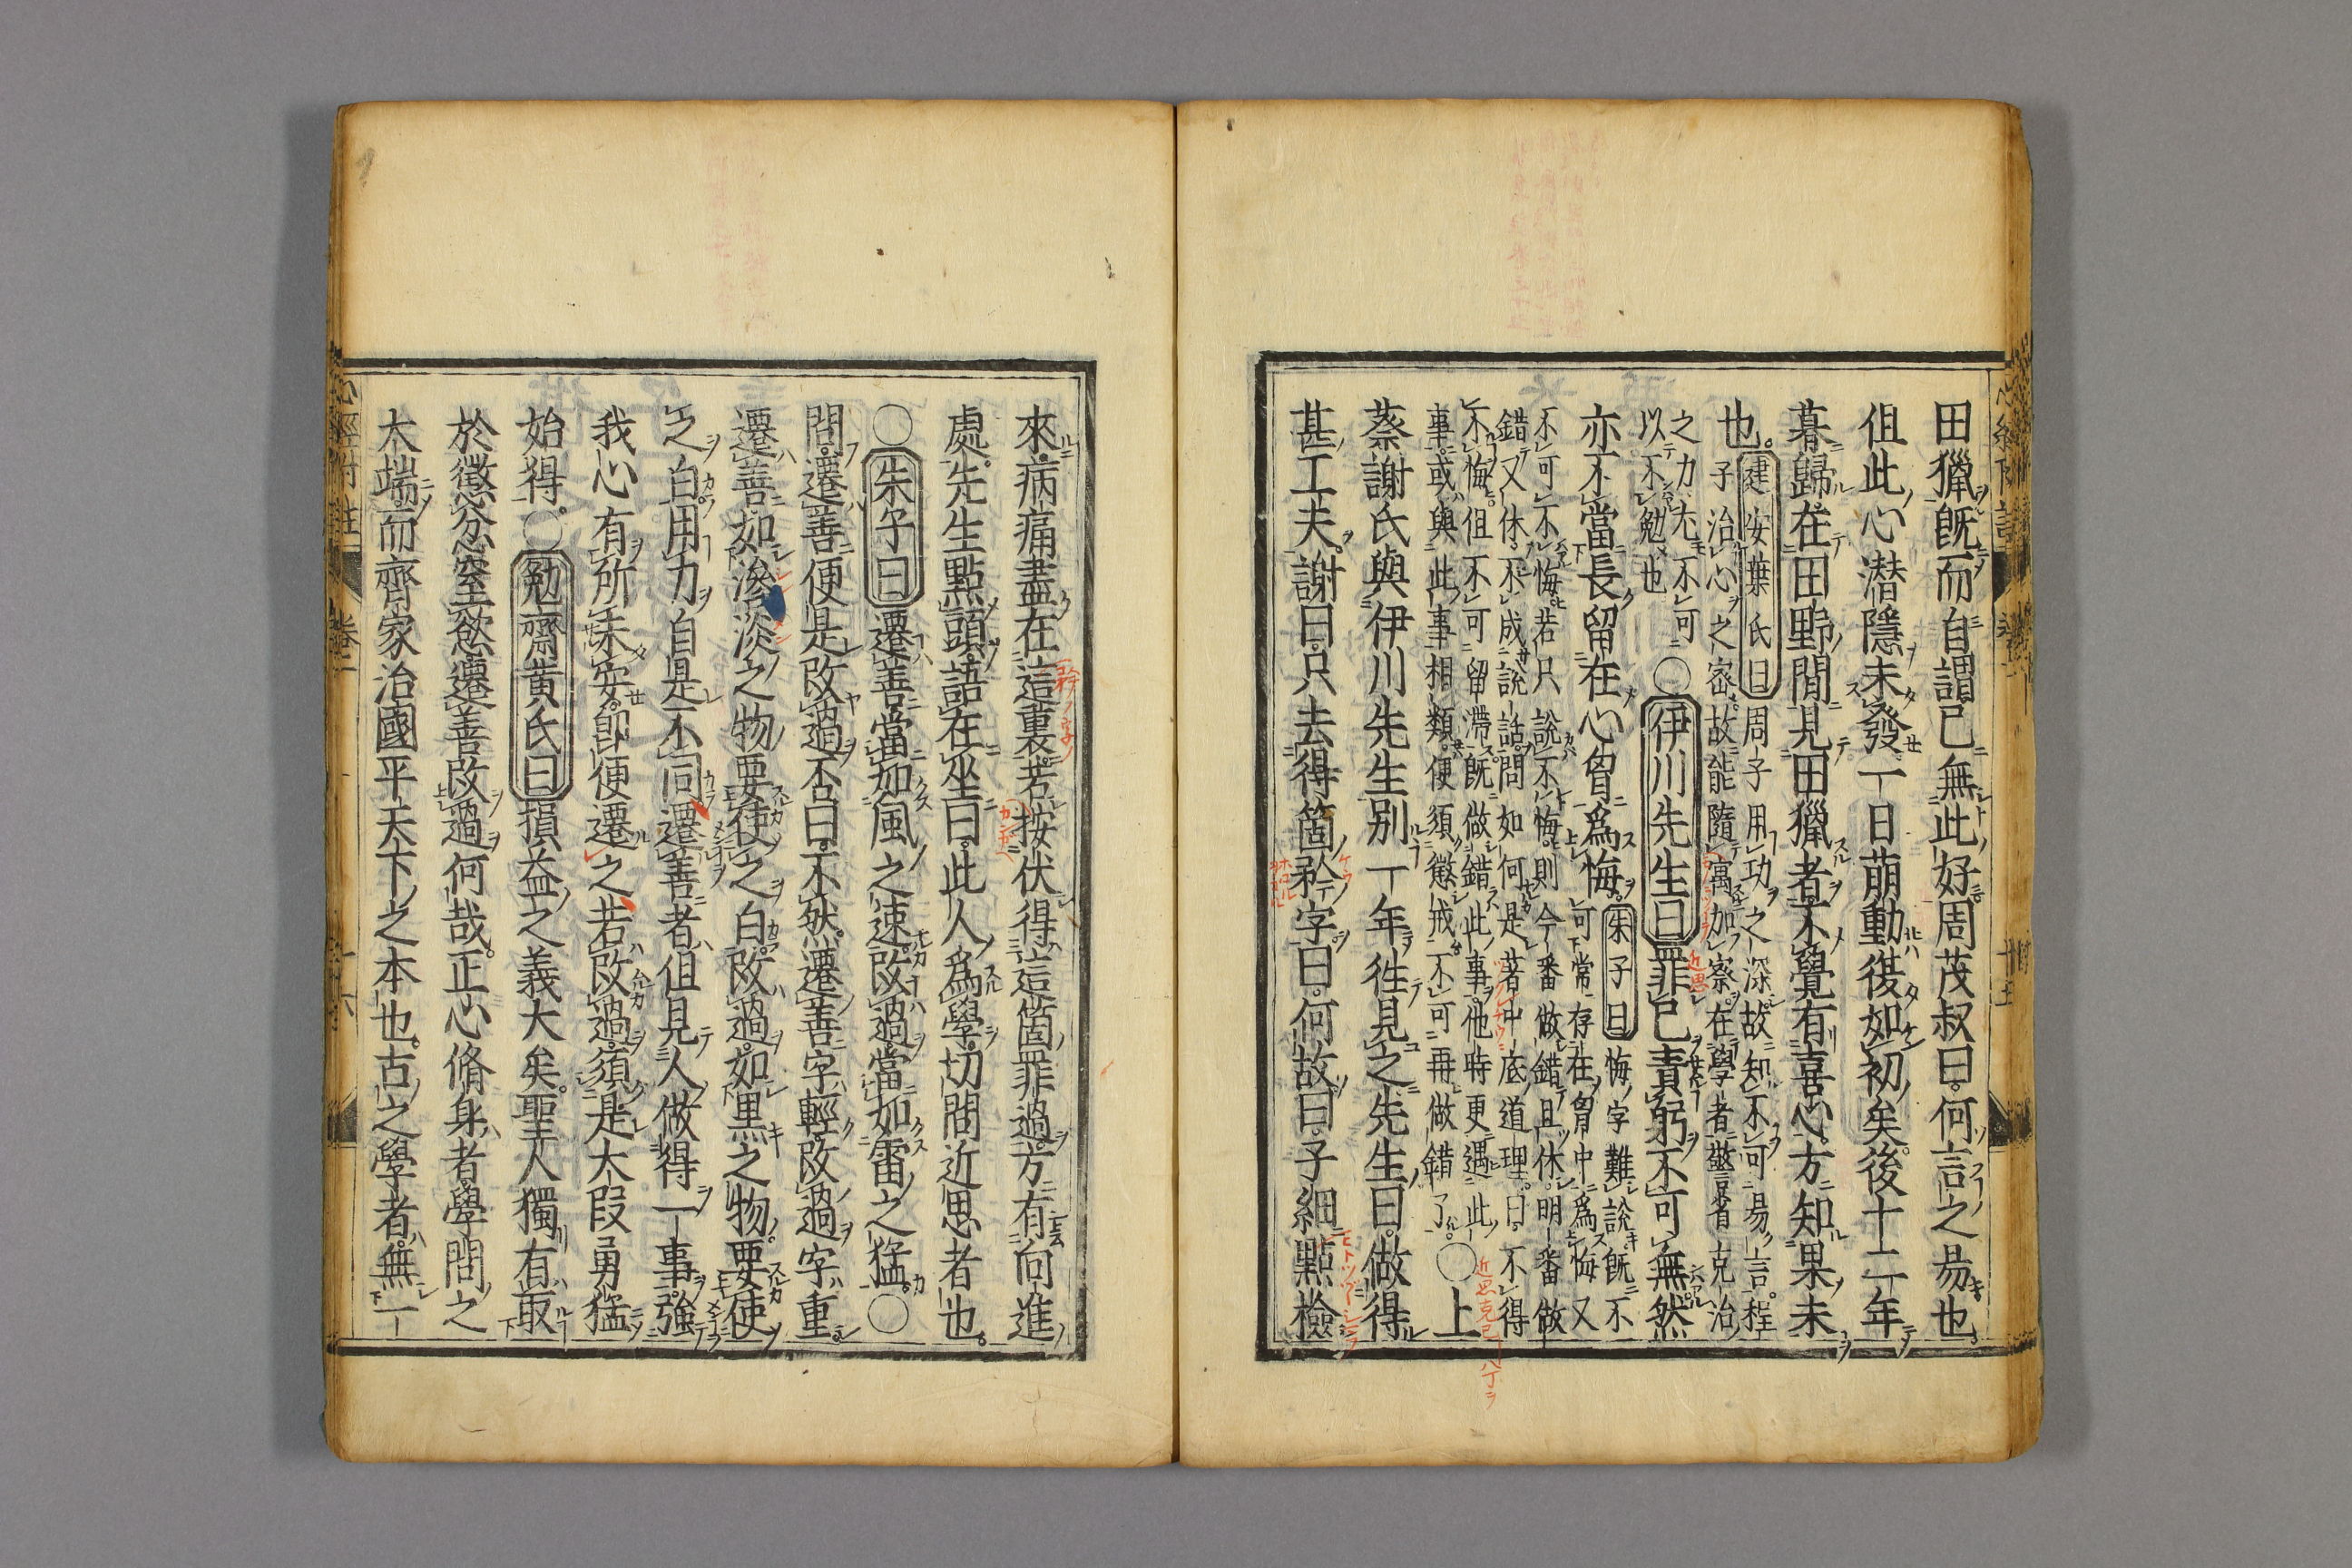 田獵既而自謂已無此好周茂叔曰何言之昜也
但此心潜隱未發一日萠動復如初矣後十二年
暮歸在田野間見田獵者不覺有喜心方知果未
也
建安葉氏曰周子用功之深故知不可昜言程
子治心之宻故能隨寓加察在學者警省克治
之力尤不可
以不勉也
○伊川先生曰罪己責躬不可無然
亦不當長留在心胷爲悔
朱子曰悔字難說既不
可常存在胷中爲悔又
不可不悔若只說不悔則今番做錯且休明番做
錯又休不成說話問如何是著中底道理曰不得
不悔但不可留滯既做錯此事他時更遇此
事或與此事相類便須懲戒不可再做錯了
○上
蔡謝氏與伊川先生別一年徃見之先生曰做得
甚工夫謝曰只去得箇矜字曰何故曰子細點檢
來病痛盡在這裏若按伏得這箇罪過方有向進
處先生點頭語在坐曰此人爲學切問近思者也
○朱子曰遷善當如風之速改過當如雷之猛○
問遷善便是改過否曰不然遷善字輕改過字重
遷善如滲淡之物要使之白改過如黒之物要使
之白用力自是不同遷善者但見人做得一事強
我心有所未安卽便遷之若改過須是大段勇猛
始得○勉齋黄氏曰損益之義大矣聖人獨有取
於懲忿窒慾遷善改過何哉正心脩身者學問之
大端而齊家治國平天下之本也古之學者無一
心經附註
卷二
十六